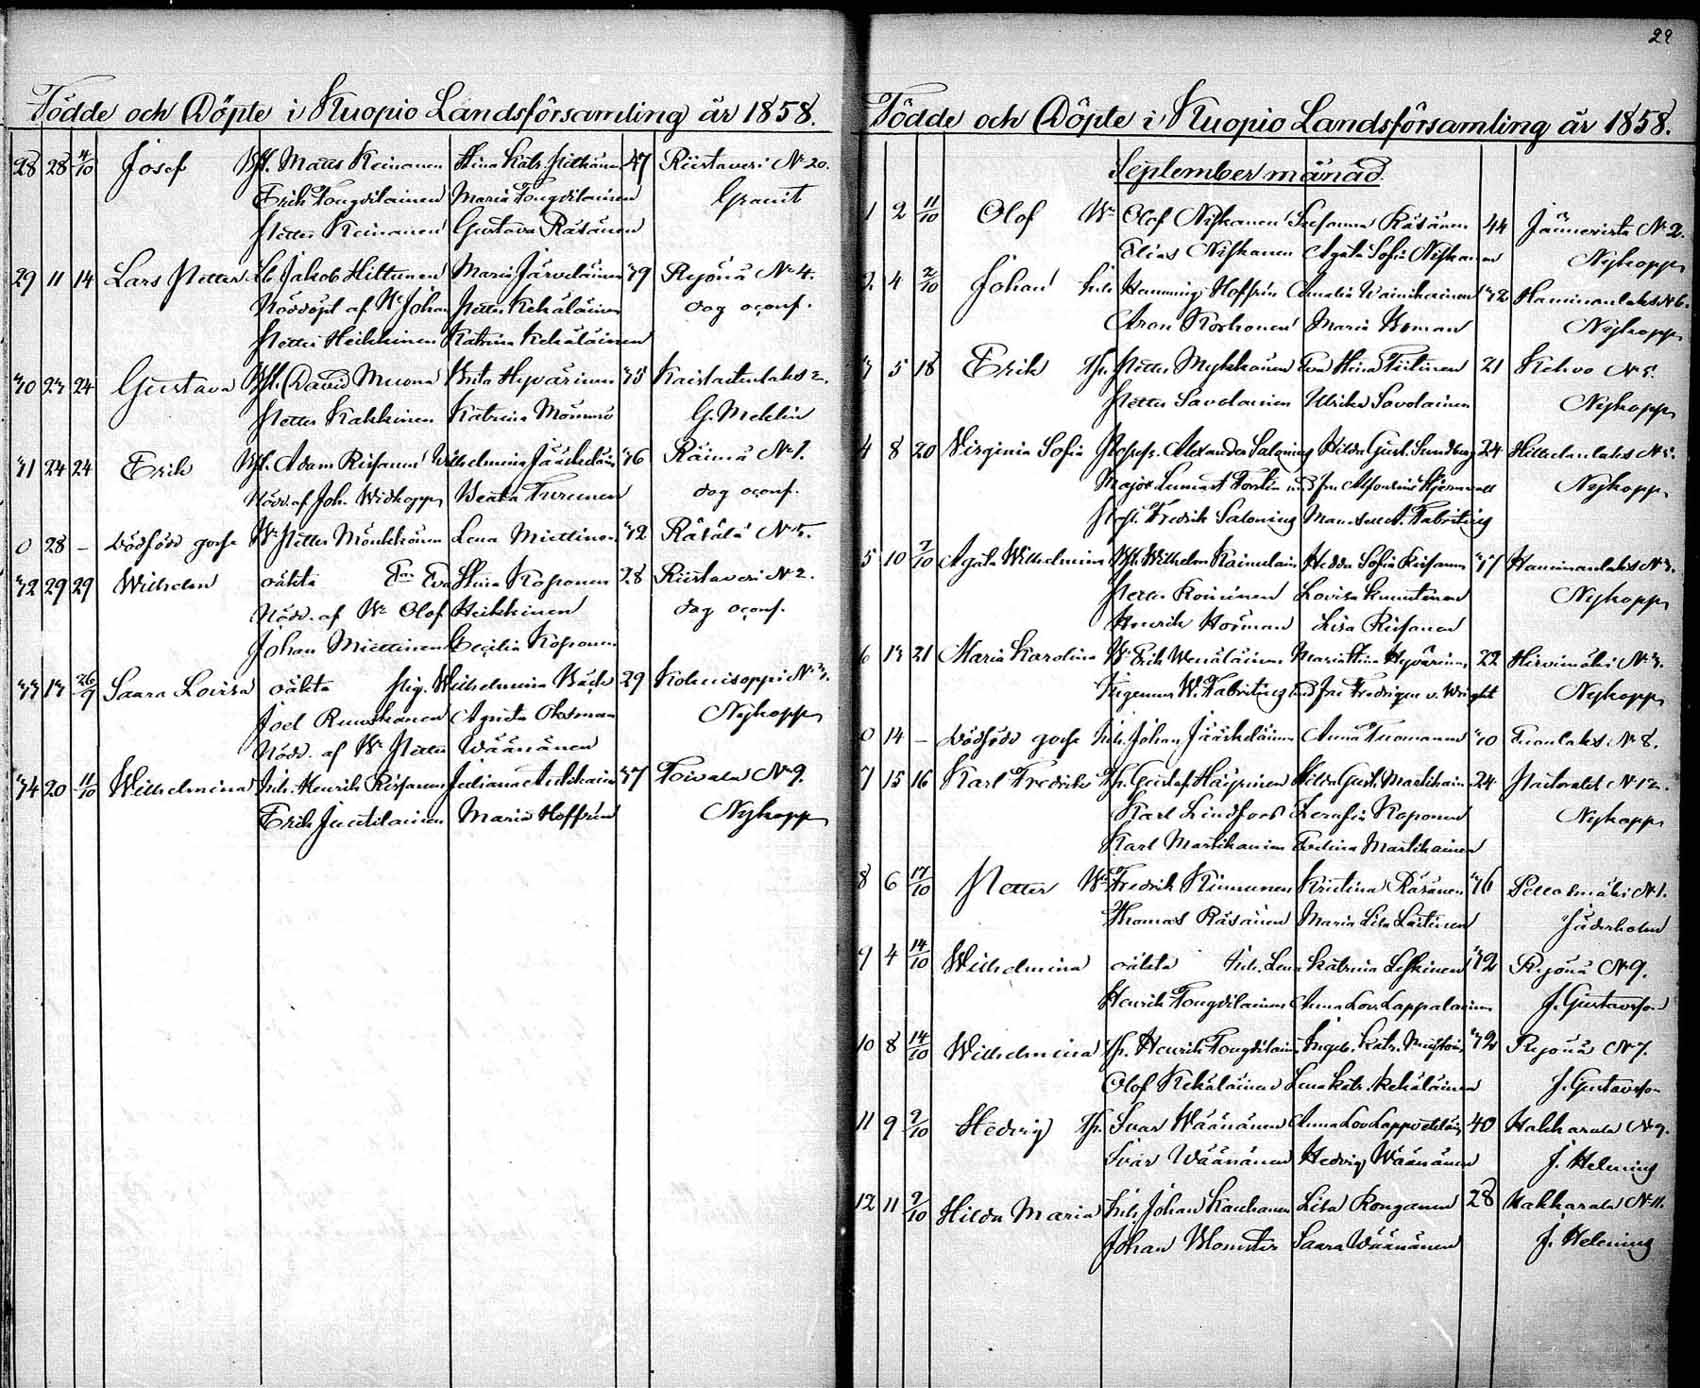 Födde och Döpte i Kuopio Landsförsamling år 1858.
28 28 4/10 Josef Matts Keinonen Stina Katr. 47 Riistaveri No 20.
Erik Tougdilainen Maria Tougdilainen Granit
Petter Keinonen Gustava Räsänen
29 11 14 Lars Petter Jakob Hiltunen Maria Järveläinen 39 Ryönä No 4.
Nöddöpt af Johan Petter Kekäläinen dog oconf.
Petter Heikkinen Katrina Kekäläinen
30 23 24 Gustava David Muona Brita Hyvärinen 35
Petter Kakkinen Katrina G. Mehlin
31 24 24 Erik Adam Riisanen Wilhelmina Jääskeläin 36 Räimä No 1.
Nödd. af Joh. Beata Turunen dog oconf.
0 28 – Dödfödd gosse Petter Mönkkönen Lena Miettinen 32 Räsälä No
32 29 29 Wilhelm oäkta Eva Stina Koponen 28 Riistaveri No 2.
Nödd. af Olof Heikkinen dog oconf.
Johan Miettinen Cecilia Koponen
33 13 26/9 Saara Lovisa oäkta Pig. Wilhelmina 29 Kolmisoppi No 3.
Joel Ruuskanen Agneta Oksman Nykopp
Nödd. af Petter Wäänänen
34 20 11/10 Wilhelmina Inh. Henrik Riisanen Juliana 37 Toivala No 9.
Erik Juutilainen Maria Hoffrén Nykopp
29
Födde och Döpte i Kuopio Landsförsamling år 1858.
September månad
1 2 11/10 Olof Olof Niskanen Susanna Räsänen 44 Jännevirta No 2.
Elias Niskanen Agata Sofia Niskanen Nykopp
2 4 2/10 Johan Inh. Hemming Hoffrén Amalia 32 Haminanlaks No 6.
Aron Korhonen Maria Nykopp
3 5 18 Erik Petter Mykkänen Eva Stina 21 Kehvo No 5.
Petter Savolainen Ulrika Savolainen Nykopp
4 8 20 Virginia Sofia Alexander Saloning Hilda Gust. Sundberg 24
Major Lennart Nykopp
Fredrik Saloning Mamsell A. Fabriting
5 10 2/10 Agata Wilhelmina Wilhelm Kainulain Hedda Sofia Riisanen 37 Haminanlaks No 3.
Petter Koninen Lovisa Knuutinen Nykopp
Henrik Lisa Riisanen
6 13 21 Maria Karolina Erik Wenäläinen Maria Stina Hyvärinen 22 Hirvimäki No 3.
W. Fabriting Fredrique v. Wright Nykopp
0 14 – Dödfödd gosse Inh. Johan Jääskeläinen Anna Tuomanen 30 No 8.
7 15 16 Karl Fredrik Gustaf Hilda Gust. Martikain 24 No 12.
Karl Lindfors Serafia Koponen Nykopp
Karl Martikainen Evelina Martikainen
8 6 17/10 Petter Fredrik Kinnunen Kristina Räsänen 36 Pellosmäki No 1.
Thomas Räsänen Maria Lisa Laitinen Söderholm
9 4 14/10 Wilhelmina oäkta Lena Katrina Leskinen 32 Ryönä No 9.
Henrik Tougdilainen Anna Lov. Lappalainen J. Gustavson
10 8 14/10 Wilhelmina Henrik Tougdilain Ingeb. Katr. 32 Ryönä No 7.
Olof Kekäläinen Lena Katr. Kekäläinen J. Gustavson
11 9 2/10 Hedvig Ivar Wäänänen Anna Lov. 40 Wakkarala No 9.
Ivar Wäänänen Hedvig Wäänänen J. Helening
12 11 2/10 Hilda Maria Inh. Johan Kauhanen Lisa Ronganen 28 Wakkarala No 11.
Johan Blomster Saara Wäänänen J. Helening